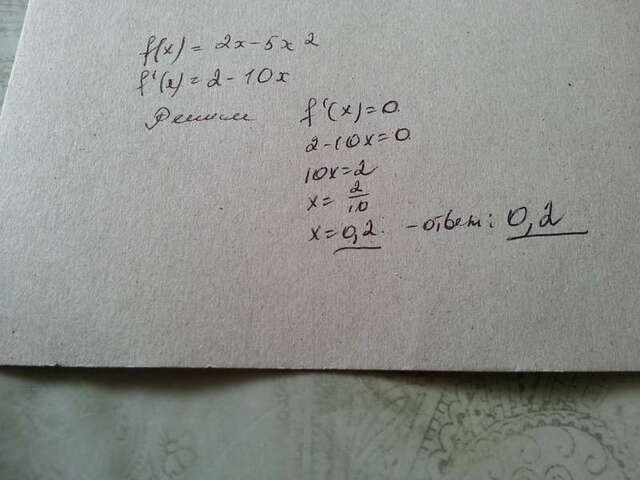 f(x) = 2x - 5x 2
f'(x) = 2 - 10x
Решим f'(x) = 0
2 - 10x = 0
10x = 2
x = 2/10
x = 0,2. - ответ: 0,2